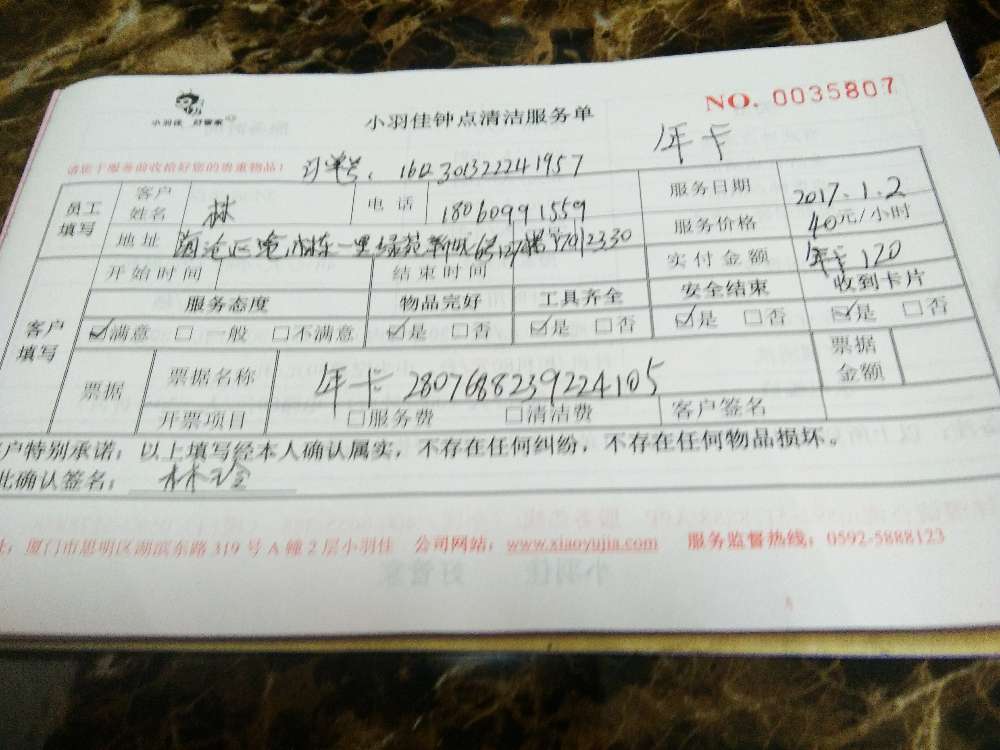 小羽佳 好管家
小羽佳钟点清洁服务单
NO. 0035807
年卡
请您于服务前收拾好您的贵重物品!
订单号: 161230132224 1957
员工填写
客户姓名 林 电话 18060991559 服务日期 2017.1.2
服务价格 40元/小时
地址 一里绿苑
开始时间 结束时间 实付金额 年卡 120
客户填写
服务态度 物品完好 工具齐全 安全结束 收到卡片
☑满意 □一般 □不满意 ☑是 □否 ☑是 □否 ☑是 □否 ☑是 □否
票据 票据名称 年卡 2807688239224105 票据金额
开票项目 □服务费 □清洁费 客户签名
户特别承诺:以上填写经本人确认属实,不存在任何纠纷,不存在任何物品损坏。
此确认签名: 林玲
址:厦门市思明区湖滨东路 319 号 A 幢 2 层小羽佳 公司网站:www.xiaoyujia.com 服务监督热线:0592-5888123